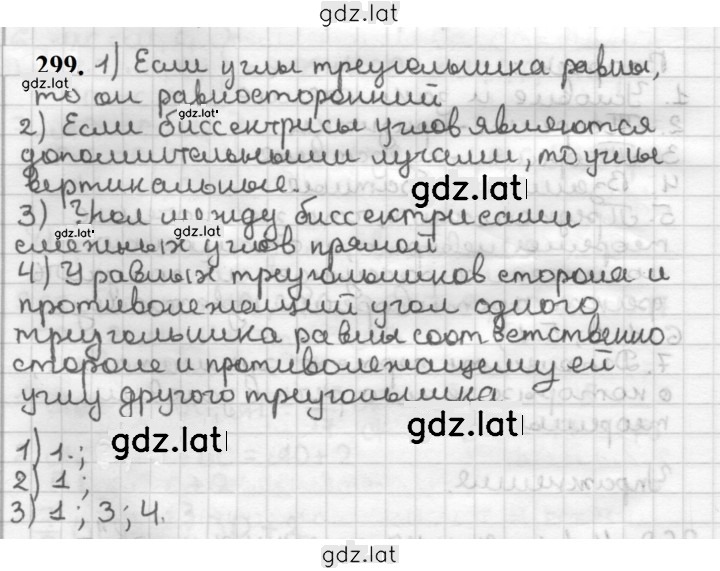 gdz.lat
299. 1) Если углы треугольника равны,
gdz.lat
то он равносторонний
gdz.lat
2) Если биссектрисы углов являются
дополнительными лучами, то углы
вертикальные.
gdz.lat
3) Угол между биссектрисами
gdz.lat
gdz.lat
смежных углов прямой
4) У равных треугольников сторона и
противолежащий угол одного
треугольника равны соответственно
стороне и противолежащему ей
углу другого треугольника
gdz.lat
gdz.lat
1) 1.;
2) 1;
3) 1; 3; 4.
gdz.lat